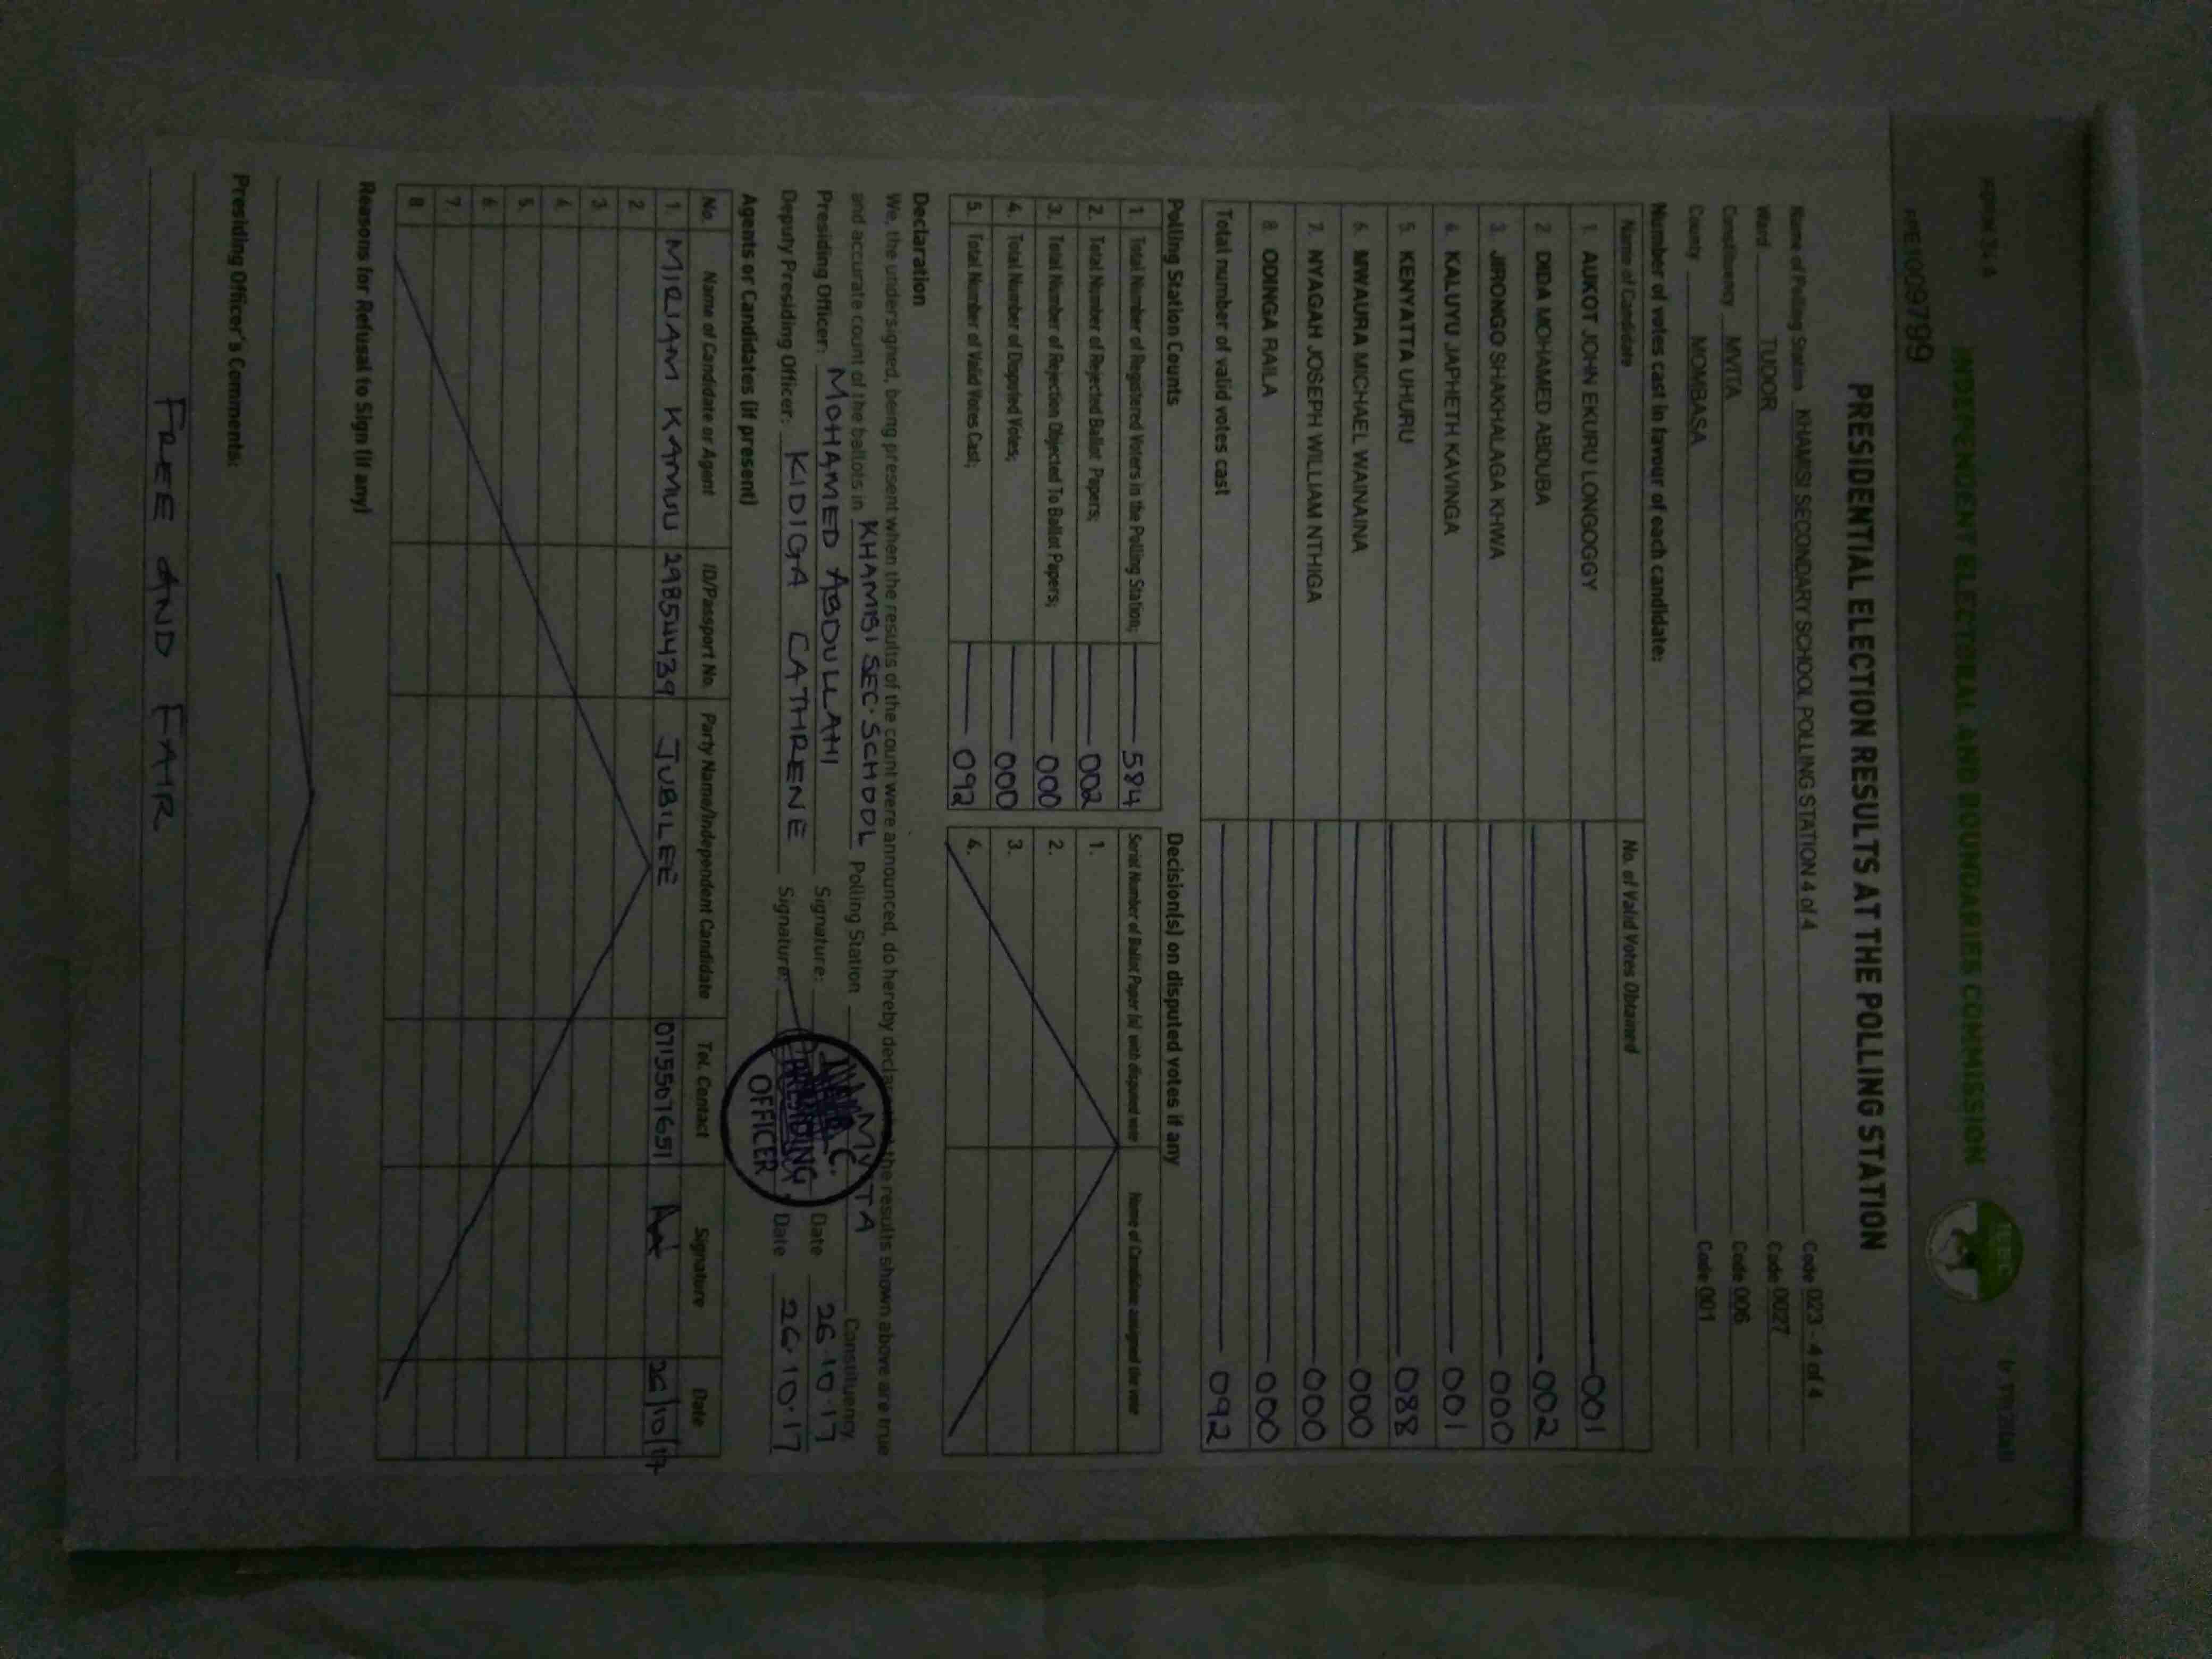 FORM 34 A
INDEPENDENT ELECTORAL AND BOUNDARIES COMMISSION
IEBC
PRE1009799
PRESIDENTIAL ELECTION RESULTS AT THE POLLING STATION
Name of Polling Station KHAMISI SECONDARY SCHOOL POLLING STATION 4 of 4 Code 023 - 4 of 4
Ward TUDOR Code 0027
Constituency MVITA Code 006
County MOMBASA Code 001
Number of votes cast in favour of each candidate:
Name of Candidate No. of Valid Votes Obtained
1. AUKOT JOHN EKURU LONGOGGY 001
2. DIDA MOHAMED ABDUBA 002
3. JIRONGO SHAKHALAGA KHWA 000
4. KALUYU JAPHETH KAVINGA 001
5. KENYATTA UHURU 088
6. MWAURA MICHAEL WAINAINA 000
7. NYAGAH JOSEPH WILLIAM NTHIGA 000
8. ODINGA RAILA 000
Total number of valid votes cast 092
Polling Station Counts
1 Total Number of Registered Voters in the Polling Station; 584
2. Total Number of Rejected Ballot Papers; 002
3. Total Number of Rejection Objected To Ballot Papers; 000
4. Total Number of Disputed Votes; 000
5. Total Number of Valid Votes Cast; 092
Decision(s) on disputed votes if any
Serial Number of Ballot Paper (s) with disputed vote Name of Candidate assigned the vote
1.
2.
3.
4.
Declaration
We, the undersigned, being present when the results of the count were announced, do hereby declare the results shown above are true
and accurate count of the ballots in KHAMISI SEC. SCHOOL Polling Station MVITA Constituency.
Presiding Officer: MOHAMED ABDULLAHI Signature: Date 26.10.17
Deputy Presiding Officer: KIDIGA CATHRENE Signature: Date 26.10.17
PRESIDING OFFICER
Agents or Candidates (if present)
No. Name of Candidate or Agent ID/Passport No. Party Name/Independent Candidate Tel. Contact Signature Date
1. MIRIAM KAMUU 29854439 JUBILEE 0715507651 26/10/17
2.
3.
4.
5.
6.
7.
8
Reasons for Refusal to Sign (if any)
Presiding Officer's Comments:
FREE AND FAIR